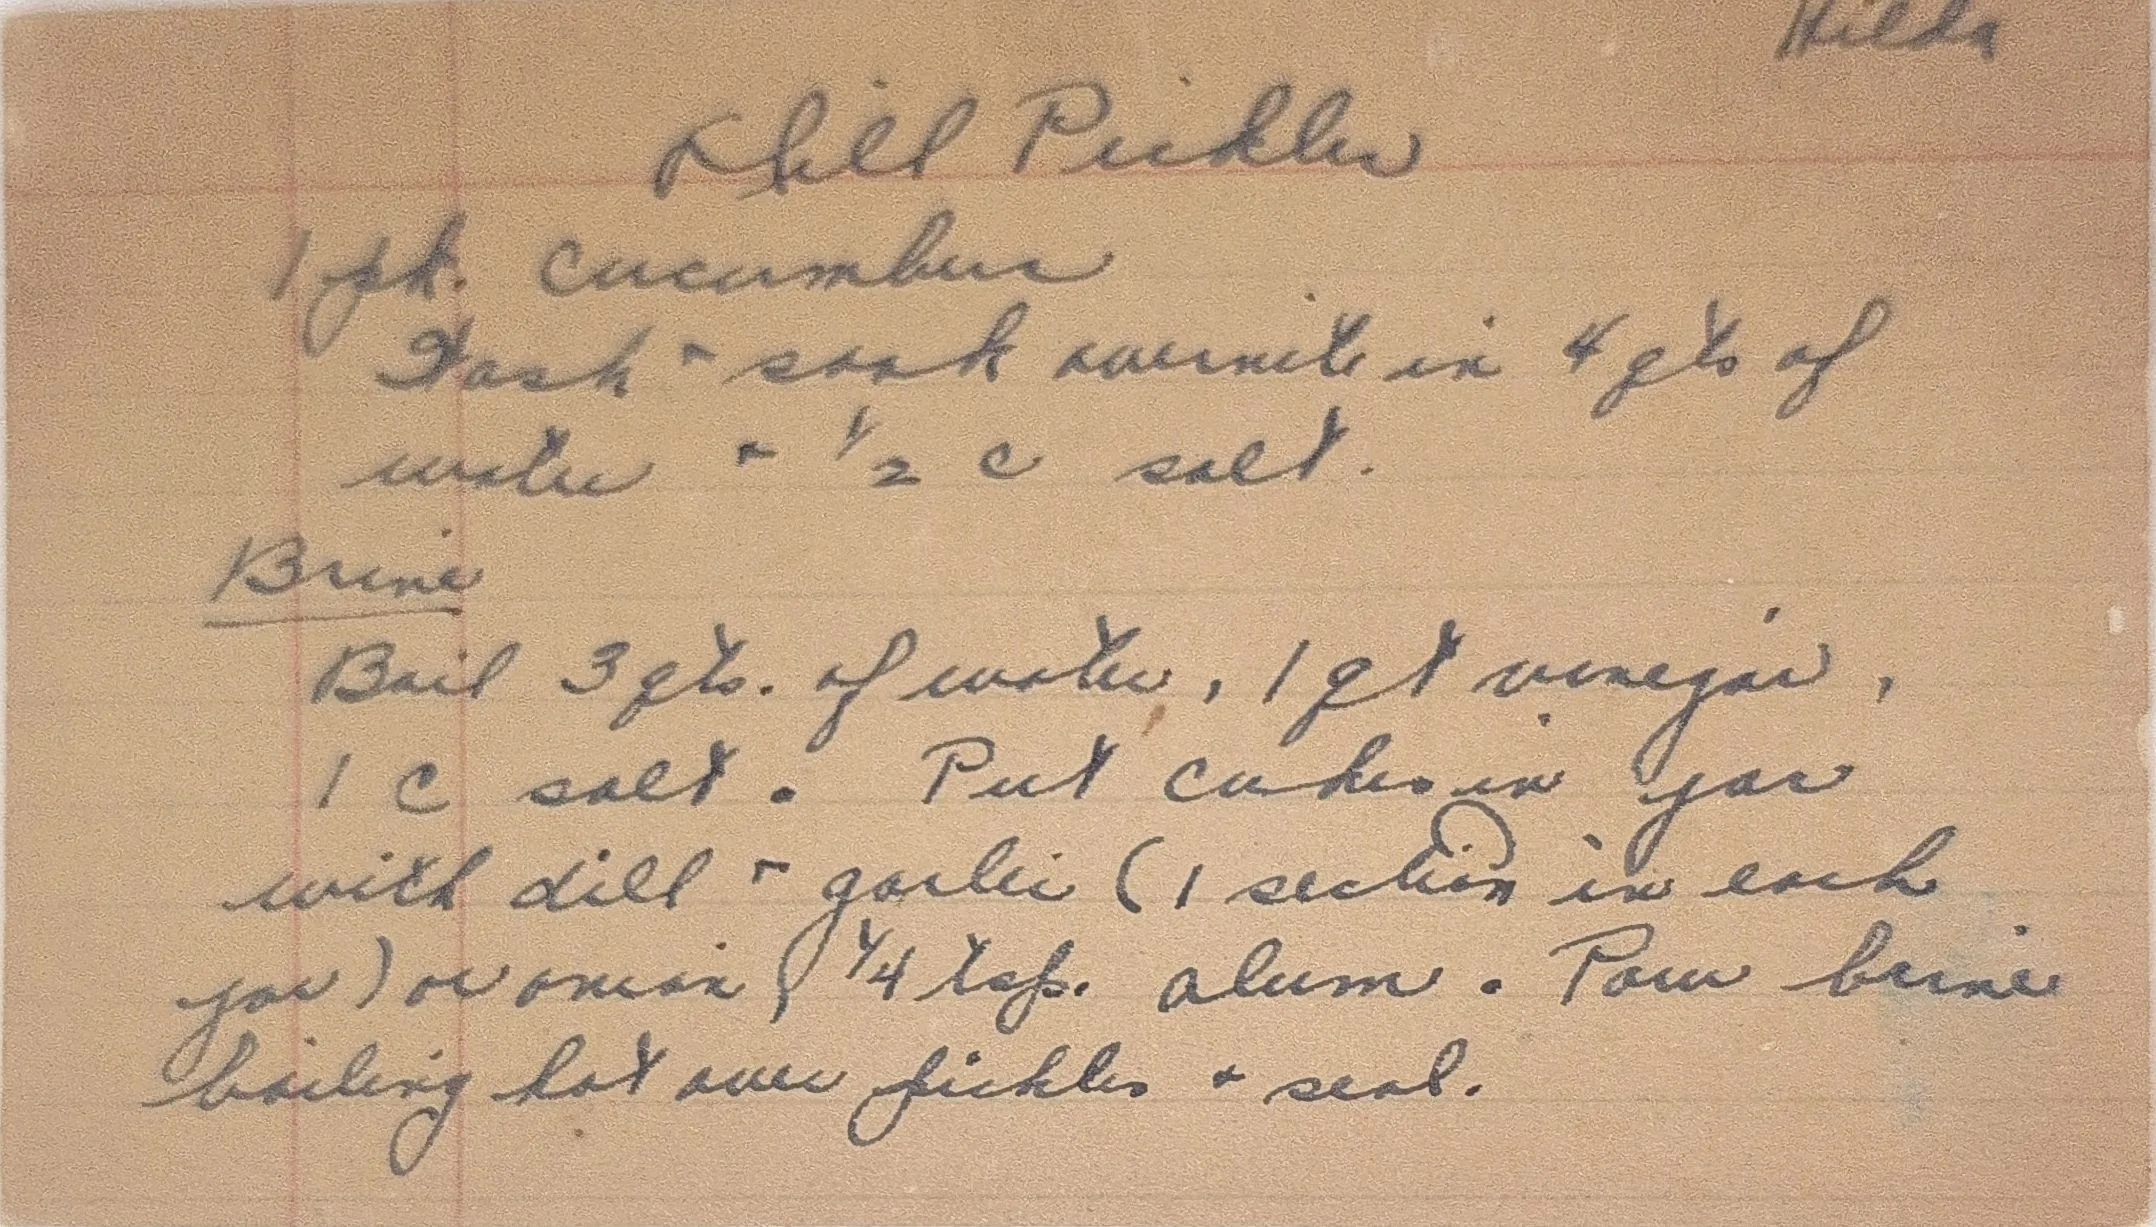 Hilda
Dill Pickles
1 pk. cucumbers
Wash + soak overnite in 4 qts of
water + 1/2 c salt.
Brine
Boil 3 qts. of water, 1 qt vinegar,
1 c salt. Put cukes in jar
with dill + garlic (1 section in each
jar) or onion, 1/4 tsp. alum. Pour brine
boiling hot over pickles + seal.